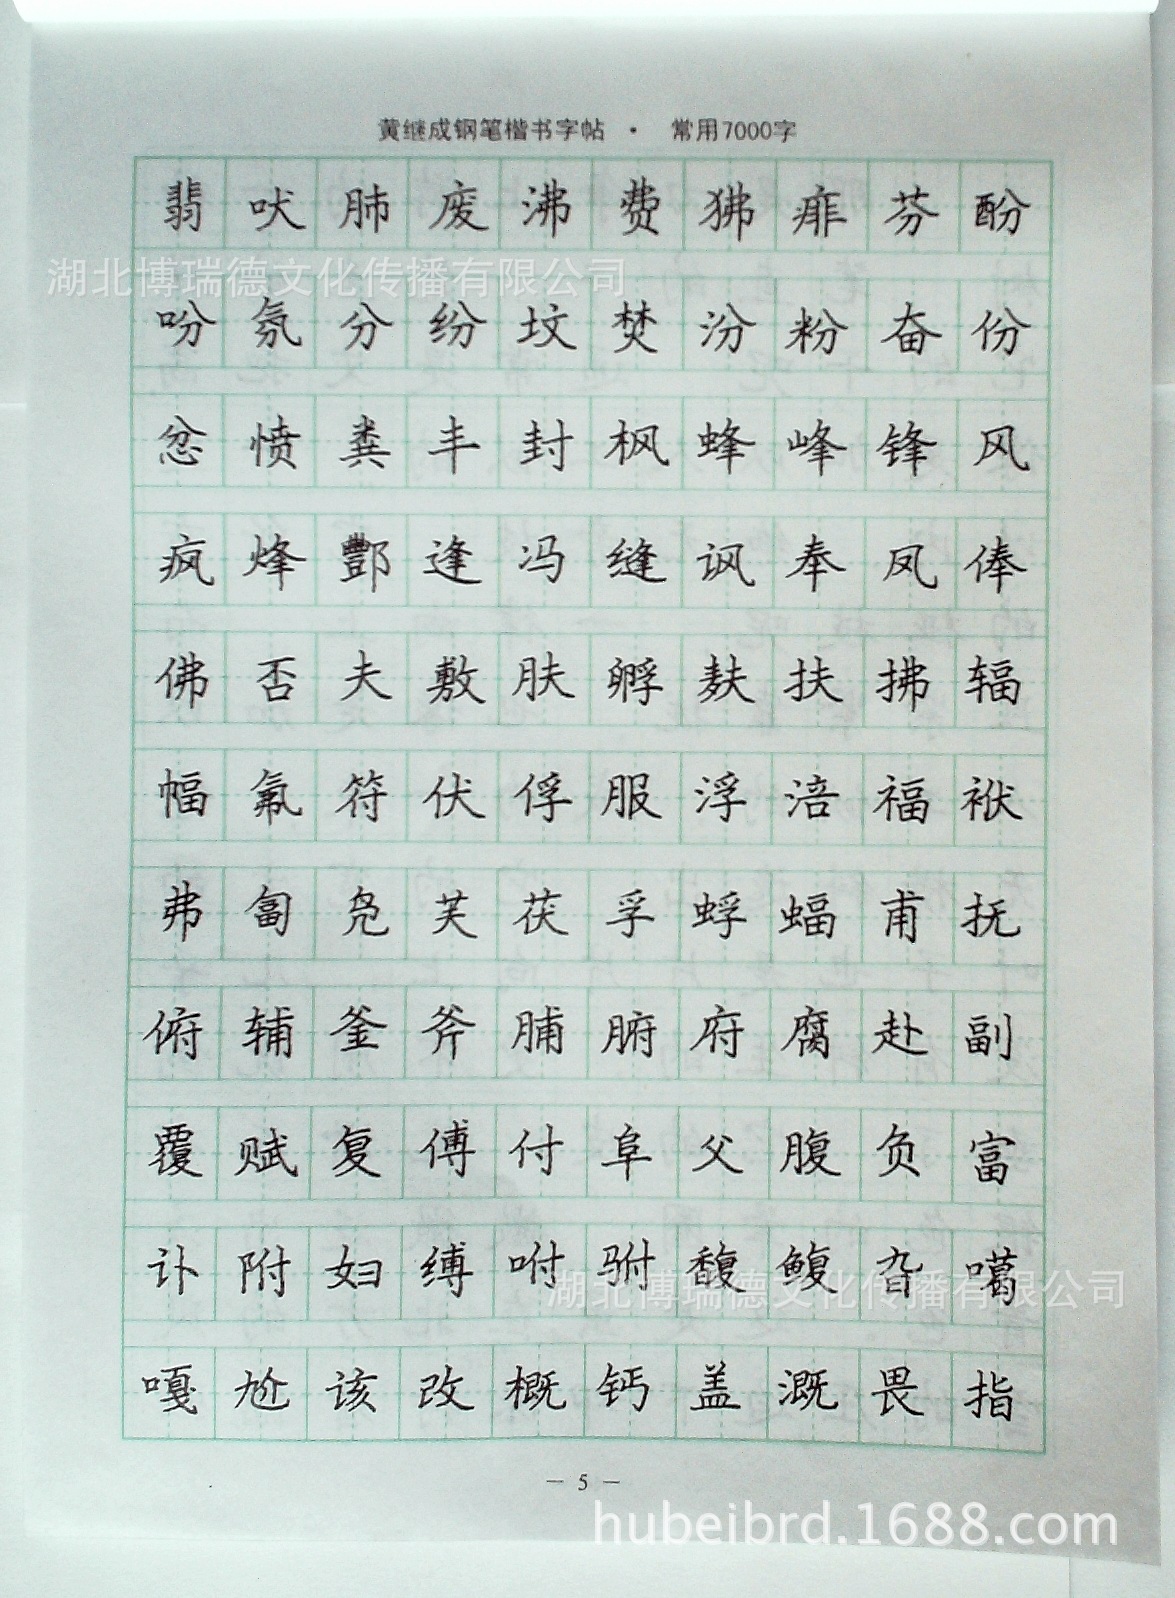 黄继成钢笔楷书字帖 · 常用7000字
翡吠肺废沸费狒痱芬酚
湖北博瑞德文化传播有限公司
吩氛分纷坟焚汾粉奋份
忿愤粪丰封枫蜂峰锋风
疯烽酆逢冯缝讽奉凤俸
佛否夫敷肤孵麸扶拂辐
幅氟符伏俘服浮涪福袱
弗匐凫芙茯孚蜉蝠甫抚
俯辅釜斧脯腑府腐赴副
覆赋复傅付阜父腹负富
讣附妇缚咐驸馥鳆旮噶
湖北博瑞德文化传播有限公司
嘎尬该改概钙盖溉畏指
— 5 —
hubeibrd.1688.com